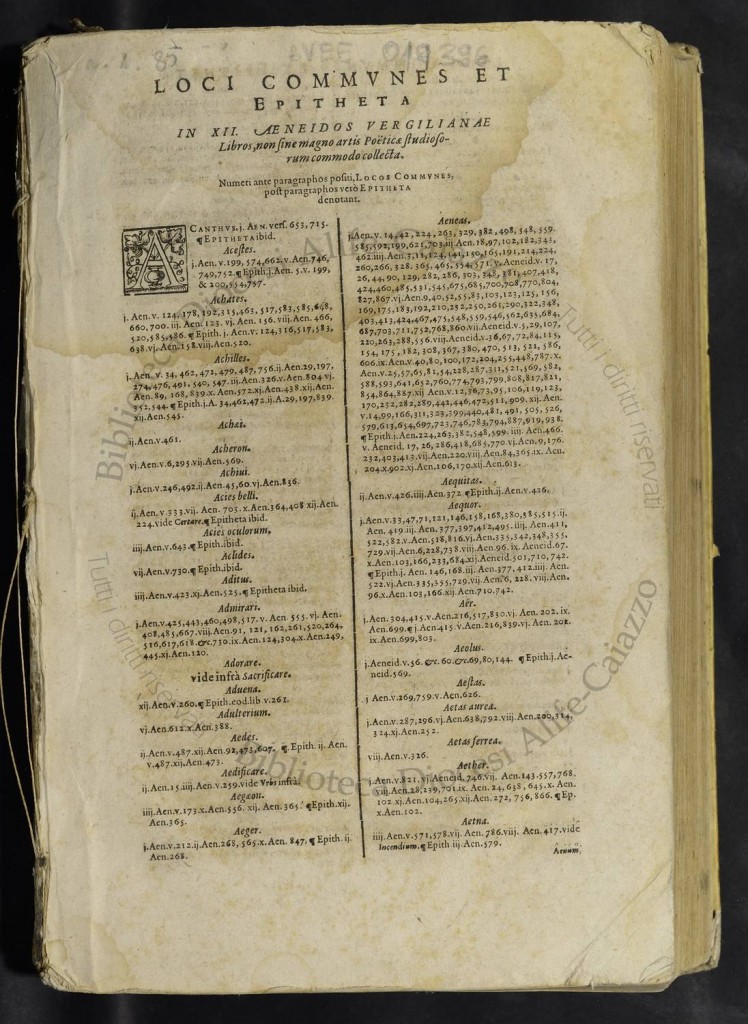 85
AVEE 019396
LOCI COMMVNES ET
EPITHETA
IN XII. AENEIDOS VERGILIANAE
Libros, non sine magno artis Poëticæ studioso-
rum commodo collecta.
Numeri ante paragraphos positi, LOCOS COMMVNES,
post paragraphos verò EPITHETA
denotant.
ACANTHVS. j. AEN. vers. 653, 715.
¶ EPITHETA ibid.
Acestes.
j. Aen. v. 199, 574, 662. v. Aen. 746,
749, 752. ¶ Epith. j. Aen. 5. v. 199,
& 200, 554, 757.
Achates.
j. Aen. v. 124, 178, 192, 315, 463, 517, 583, 585, 648,
660, 700. iij. Aen. 123. vj. Aen. 156. viij. Aen. 466,
520, 585, 586. ¶ Epith. j. Aen. v. 124, 316, 517, 583,
638. vj. Aen. 158. viij. Aen. 520.
Achilles.
j. Aen. v. 34, 462, 472, 479, 487, 756. ij. Aen. 29, 197,
274, 476, 491, 540, 547. iij. Aen. 326. v. Aen. 804. vj.
Aen. 89, 168, 839. x. Aen. 572. xj. Aen. 438. xij. Aen.
352, 544. ¶ Epith. j. A. 34, 462, 472. ij. A. 29, 197, 839.
xij. Aen. 545.
Achai.
ij. Aen. v. 461.
Acheron.
vj. Aen. v. 6, 295. vij. Aen. 569.
Achiui.
j. Aen. v. 246, 492. ij. Aen. 45, 60. vj. Aen. 836.
Acies belli.
ij. Aen. v. 333. vij. Aen. 705. x. Aen. 364, 408 xij. Aen.
224. vide Certare. ¶ Epitheta ibid.
Acies oculorum.
iiij. Aen. v. 643. ¶ Epith. ibid.
Aclides.
vij. Aen. v. 730. ¶ Epith. ibid.
Aditus.
iiij. Aen. v. 423. xj. Aen. 525. ¶ Epitheta ibid.
Admirari.
j. Aen. v. 425, 443, 460, 498, 517. v. Aen. 555. vj. Aen.
408, 485, 667. viij. Aen. 91, 121, 162, 261, 520, 264,
516, 617, 618. &c. 730. ix. Aen. 124, 304. x. Aen. 249,
445. xj. Aen. 120.
Adorare.
vide infrà Sacrificare.
Aduena.
xij. Aen. v. 260. ¶ Epith. eod. lib v. 261.
Adulterium.
vj. Aen. 612. x. Aen. 388.
Aedes.
ij. Aen. v. 487. xij. Aen. 92, 473, 607. ¶. Epith. ij. Aen.
v. 487. xij. Aen. 473.
Aedificare.
ij. Aen. 15. iij. Aen. v. 259. vide Vrbs infrà.
Aegæon.
iiij. Aen. v. 173. x. Aen. 556. xij. Aen. 365. ¶ Epith. xij.
Aen. 365.
Aeger.
j. Aen. v. 212. ij. Aen. 268, 565. x. Aen. 847. ¶ Epith. ij.
Aen. 268.
Aeneas.
j. Aen. v. 14, 42, 224, 263, 329, 382, 498, 548, 559.
585, 592, 199, 621, 703. iij. Aen. 18, 97, 102, 182, 343,
462. iij. Aen. 3, 13, 124, 141, 150, 165, 191, 214, 224,
260, 266, 328, 365, 465, 554, 571. v. Aeneid. v. 17,
26, 44, 90, 129, 282, 286, 303, 348, 381, 407, 418,
424, 460, 485, 531, 545, 675, 685, 700, 708, 770, 804,
827, 867. vj. Aen. 9, 40, 52, 55, 83, 103, 123, 125, 156,
169, 175, 183, 192, 210, 232, 250, 261, 290, 322, 348,
403, 413, 424, 467, 475, 548, 559, 546, 562, 635, 684,
687, 703, 711, 752, 768, 860. vij. Aeneid. v. 5, 29, 107,
220, 263, 288, 556. viij. Aeneid. v. 36, 67, 72, 84, 115,
154, 175, 182, 308, 367, 380, 470, 513, 521, 586,
606. ix. Aen. v. 40, 80, 100, 172, 204, 255, 448, 787. x.
Aen. v. 25, 57, 65, 81, 54, 228, 287, 311, 521, 569, 582,
588, 593, 641, 652, 760, 774, 793, 799, 808, 817, 821,
854, 864, 887. xij. Aen. v. 12, 36, 73, 95, 106, 119, 123,
170, 232, 282, 289, 442, 446, 472, 511, 909. xij. Aen.
v. 14, 99, 166, 311, 323, 399, 440, 481, 491, 505, 526,
579, 613, 654, 697, 723, 746, 783, 794, 887, 919, 938.
¶ Epith. j. Aen. 224, 263, 382, 548, 599. iiij. Aen. 466.
v. Aeneid. 17, 26, 286, 418, 685, 770. vj. Aen. 9, 176.
232, 403, 413. vij. Aen. 220. viij. Aen. 84, 365. ix. Aen.
204. x. 902. xj. Aen. 106, 170. xij. Aen. 613.
Aequitas.
ij. Aen. v. 426. iiij. Aen. 372 ¶ Epith. ij. Aen. v. 426.
Aequor.
j. Aen. v. 33, 47, 71, 121, 146, 158, 168, 380, 585, 515. ij.
Aen. 419. iij. Aen. 377, 397, 412, 495. iiij. Aen. 411,
522, 582. v. Aen. 518, 816. vj. Aen. 335, 342, 348, 355,
729. vij. Aen. 6, 228, 738. viij. Aen. 96. ix. Aeneid. 67.
x. Aen. 103, 166, 233, 684. xij. Aeneid. 501, 710, 742.
¶ Epith. j. Aen. 146, 168. iij. Aen. 377, 412. iiij. Aen.
522. vj. Aen. 335, 355, 729. vij. Aen. 6, 228. viij. Aen.
96. x. Aen. 103, 166. xij. Aen. 710. 742.
Aër.
j. Aen. 304, 415. v. Aen. 216, 517, 830. vj. Aen. 202. ix.
Aen. 699. ¶ j. Aen 415. v. Aen. 216, 839. vj. Aen. 202.
ix. Aen. 699, 803.
Aeolus.
j. Aeneid. v. 56. &c. 60. &c. 69, 80, 144. ¶ Epith. j. Ae-
neid. 569.
Aestas.
j Aen. v. 269, 759. v. Aen. 626.
Aetas aurea.
j. Aen. v. 287, 296. vj. Aen. 638, 792. viij. Aen. 200, 314,
324. xj. Aen. 252.
Aetas ferrea.
viij. Aen. v. 326.
Aether.
j. Aen. v. 821. vj. Aeneid, 746. vij. Aen. 143. 557, 768.
viij. Aen. 28, 239, 701. ix. Aen. 24, 638, 645. x. Aen.
102. xj. Aen. 104, 265. xij. Aen. 272, 756, 866. ¶ Ep.
x. Aen. 102.
Aetna.
iij. Aen. v. 571, 578. vij. Aen. 786. viij. Aen. 417. vide
Incendium. ¶ Epith iij. Aen. 579.
Aeuum,
Biblioteca Diocesi Alife-Caiazzo
Tutti i diritti riservati